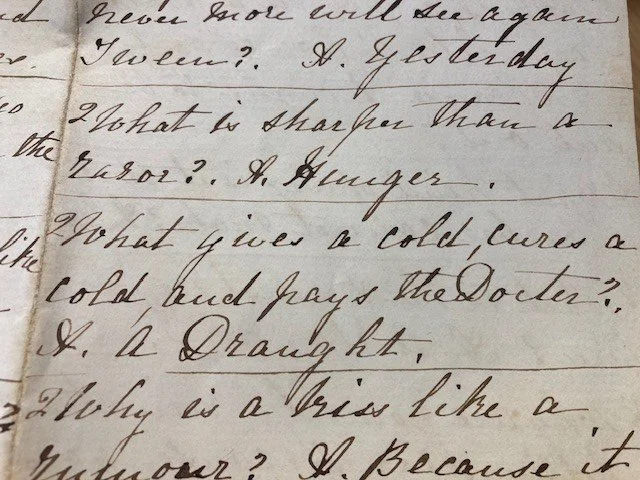 never more will see again
I ween?. A. Yesterday
2 What is sharper than a
razor?. A. Hunger.
the
2 What gives a cold, cures a
like
cold, and pays the Docter?.
A. A Draught.
2 Why is a kiss like a
rumour? A. Because it